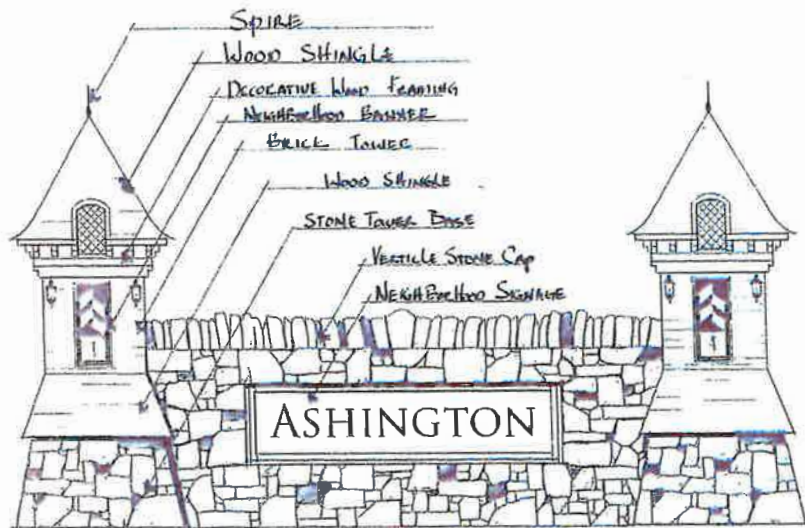 SPIRE
WOOD SHINGLE
DECORATIVE WOOD FRAMING
NEIGHBORHOOD BANNER
BRICK TOWER
WOOD SHINGLE
STONE TOWER BASE
VERTICLE STONE CAP
NEIGHBORHOOD SIGNAGE
ASHINGTON